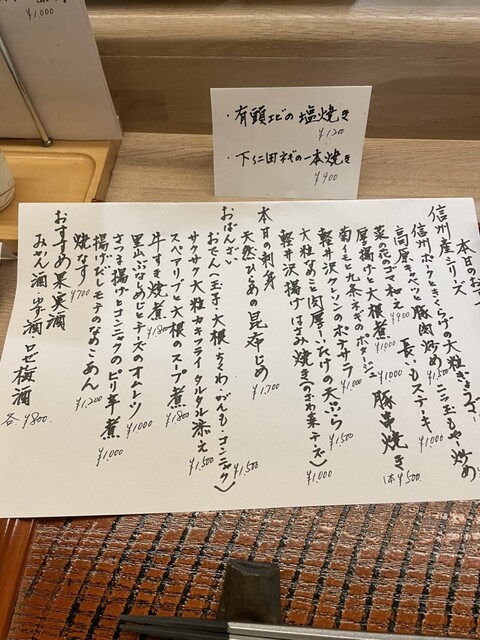 ¥1,000
・有頭エビの塩焼き
¥1,200
・下仁田ネギの一本焼き
¥900
本日のお
信州産シリーズ
信州ポークときくらげの大粒ぎょうざ
高原キャベツと豚肉炒め ¥1,500 ニンニク玉もやし炒め
菜の花のゴマ和え ¥900 長いもステーキ ¥1,000
厚揚げと大根煮 ¥1,000 豚串焼き 1本¥500
菊イモと九条ネギのポタージュ
軽井沢クレソンのポテサラ ¥1,000
大粒なめこと肉厚しいたけの天ぷら ¥1,500
軽井沢揚げはさみ焼き(のざわ菜チーズ) ¥1,000
本日の刺身
天然ひらめの昆布じめ ¥1,700
おばんざい
おでん(玉子・大根・ちくわ・がんも・コンニャク) ¥1,500
サクサク大粒カキフライタルタル添え ¥1,500
スペアリブと大根のスープ煮 ¥1,800
牛すき焼煮 ¥1,800
里山ぶなしめじとチーズのオムレツ ¥1,000
さつま揚げとコンニャクのピリ辛煮 ¥1,000
揚げだしモチのなめこあん ¥1,200
焼なす ¥700
おすすめ果実酒
みかん酒 ゆず酒 ロゼ梅酒 各¥800